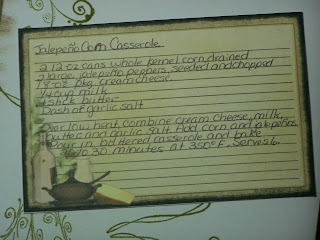 Jalapeño Corn Casserole
2 12-oz cans whole kernel corn, drained
2 large jalapeño peppers, seeded and chopped
1 8-oz pkg. cream cheese
1/4 cup milk
stick butter
Dash of garlic salt
Over low heat, combine cream cheese, milk,
butter and garlic salt. Add corn and jalapeños.
Pour in buttered casserole and bake
to 30 minutes at 350° F. Serves 6.